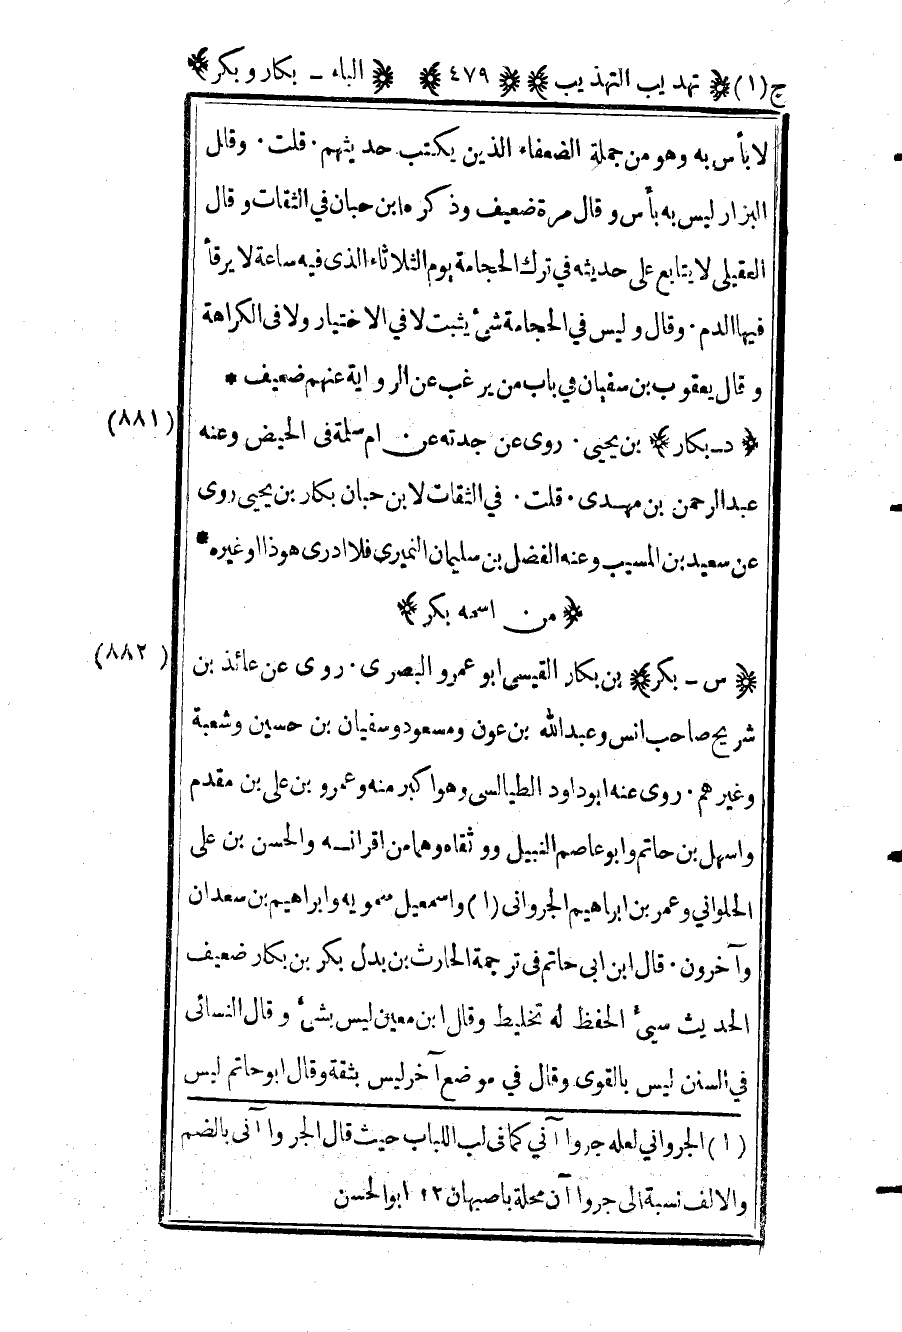 ج (١) ﴿ تهذيب التهذيب ﴾ ﴿ ٤٧٩ ﴾ ﴿ الباء - بكار وبكر ﴾
لا بأس به وهو من جملة الضعفاء الذين يكتب حديثهم · قلت · وقال
البزار ليس به بأس وقال مرة ضعيف وذكره ابن حبان في الثقات وقال
العقيلي لا يتابع على حديثه في ترك الحجامة يوم الثلاثاء الذى فيه ساعة لا يرقأ
فيها الدم · وقال وليس في الحجامة شئ يثبت لا في الاختيار ولا فى الكراهة
وقال يعقوب بن سفيان في باب من يرغب عن الرواية عنهم ضعيف *
﴿ د - بكار ﴾ بن يحيى · روى عن جدته عن ام سلمة فى الحيض وعنه (٨٨١)
عبد الرحمن بن مهدى · قلت · في الثقات لابن حبان بكار بن يحيى روى
عن سعيد بن المسيب وعنه الفضل بن سليمان النميرى فلا ادرى هو ذا او غيره *
﴿ من اسمه بكر ﴾
﴿ س - بكر ﴾ بن بكار القيسى ابو عمرو البصرى · روى عن عائذ بن (٨٨٢)
شريح صاحب انس وعبد الله بن عون ومسعود وسفيان بن حسين وشعبة
وغيرهم · روى عنه ابو داود الطيالسى وهو اكبر منه وعمرو بن على بن مقدم
واسهل بن حاتم وابو عاصم النبيل ووثقاه وهما من اقرانه والحسن بن على
الحلواني وعمر بن ابراهيم الجروانى (١) واسمعيل سمويه وابراهيم بن سعدان
وآخرون · قال ابن ابى حاتم فى ترجمة الحارث بن بدل بكر بن بكار ضعيف
الحديث سيئ الحفظ له تخليط وقال ابن معين ليس بشئ وقال النسائى
في السنن ليس بالقوى وقال في موضع آخر ليس بثقة وقال ابو حاتم ليس
(١) الجرواني لعله جروا آني كما فى لب اللباب حيث قال الجروا آنى بالضم
والالف نسبة الى جروا آن محلة باصبهان ١٢ ابو الحسن